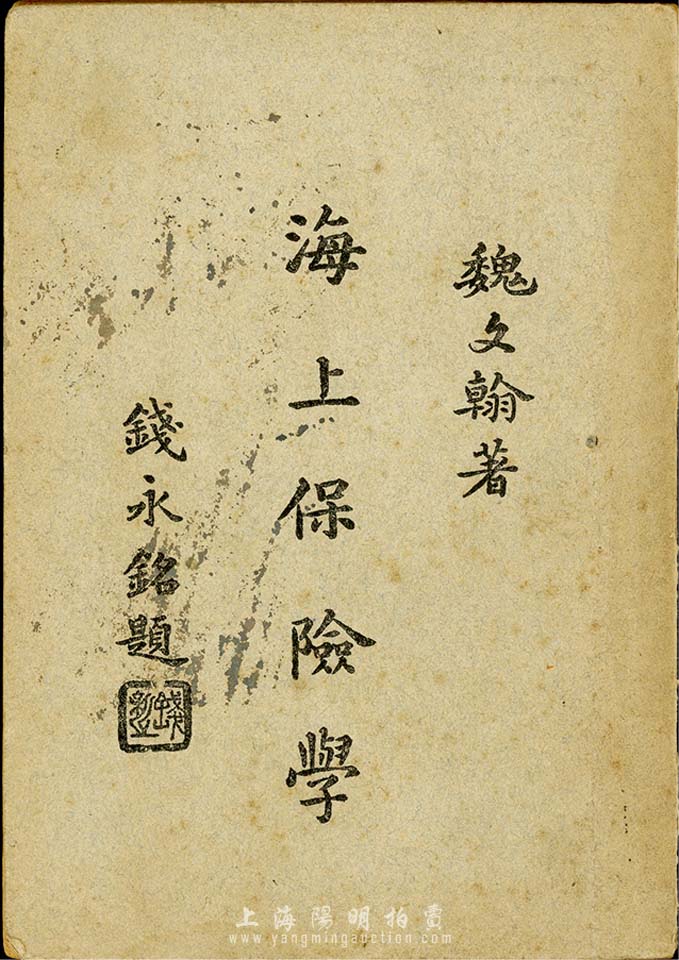 魏文翰著
海上保險學
錢永銘題
上海陽明拍賣
www.yangmingauction.com